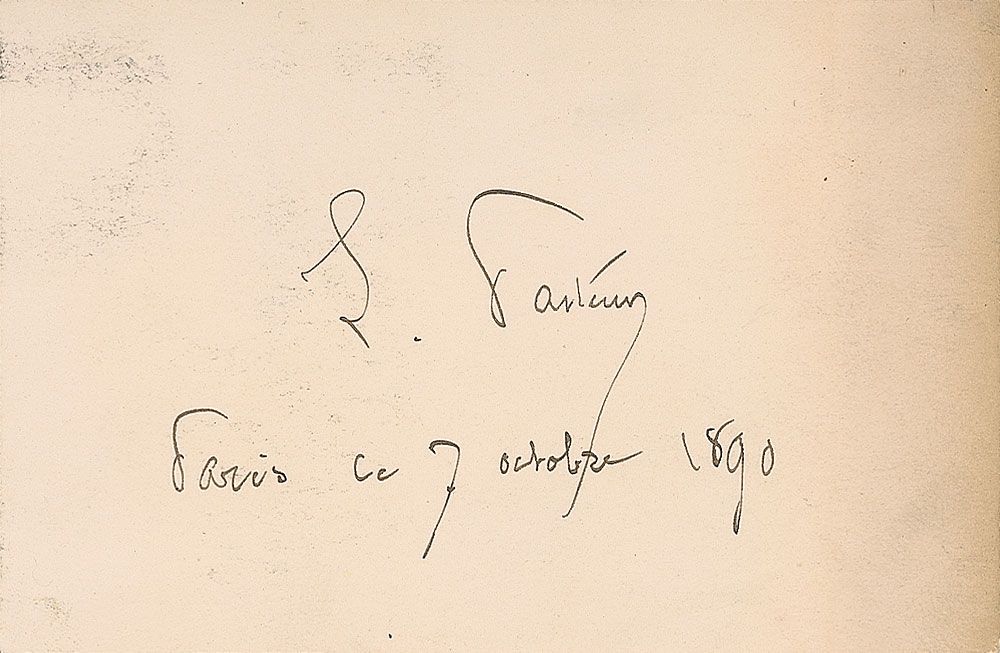 L. Pasteur
Paris ce 7 octobre 1890